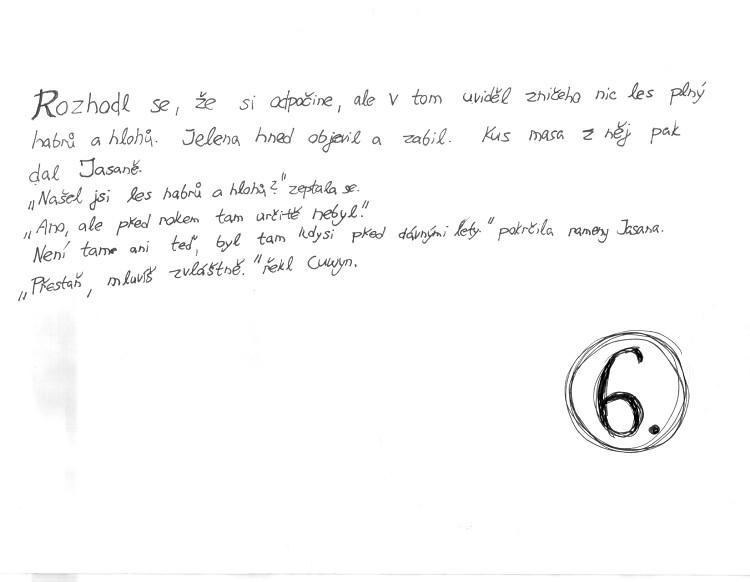 Rozhodl se, že si odpočine, ale v tom uviděl zničeho nic les plný
habrů a hlohů. Jelena hned objevil a zabil. Kus masa z něj pak
dal Jasaně.
„Našel jsi les habrů a hlohů?" zeptala se.
„Ano, ale před rokem tam určitě nebyl."
Není tam ani teď, byl tam kdysi před dávnými léty." pokrčila rameny Jasana.
„Přestaň, mluvíš zvláštně." řekl Cuwyn.
6.